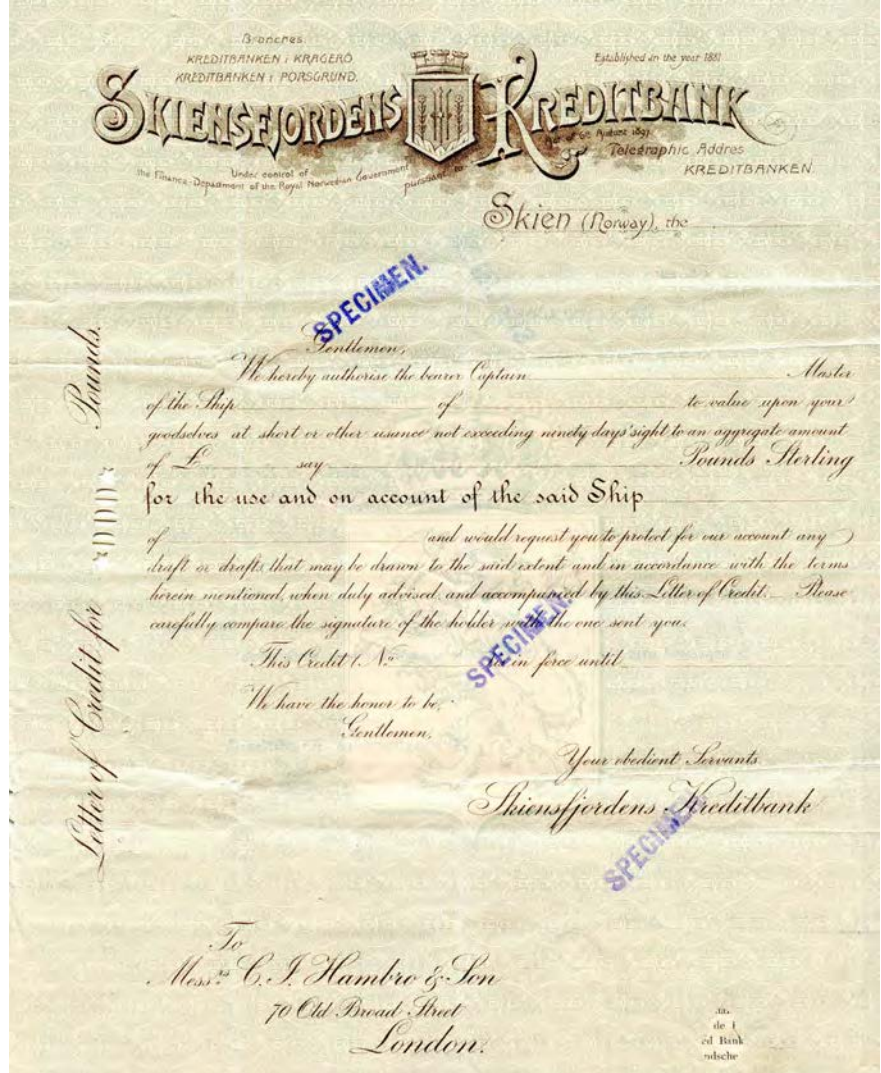 Branches.
KREDITBANKEN i KRAGERÖ
KREDITBANKEN i PORSGRUND.
Established in the year 1881
SKIENSFJORDENS KREDITBANK
Under control of
the Finance-Department of the Royal Norwegian Government
pursuant to
Act of 6th August 1897.
Telegraphic Addres
KREDITBANKEN.
Skien (Norway), the
SPECIMEN.
Gentlemen,
We hereby authorise the bearer Captain Master
of the Ship of to value upon your
goodselves at short or other usance not exceeding ninety days' sight to an aggregate amount
of £ say Pounds Sterling
for the use and on account of the said Ship
of and would request you to protect for our account any
draft or drafts that may be drawn to the said extent and in accordance with the terms
herein mentioned, when duly advised, and accompanied by this Letter of Credit. Please
carefully compare the signature of the holder with the one sent you.
SPECIMEN.
This Credit No in force until
We have the honor to be,
Gentlemen,
Your obedient Servants
Skiensfjordens Kreditbank
SPECIMEN.
Letter of Credit for Pounds.
To
Messrs C. J. Hambro & Son
70 Old Broad Street
London.
de
ed Bank
ndsche